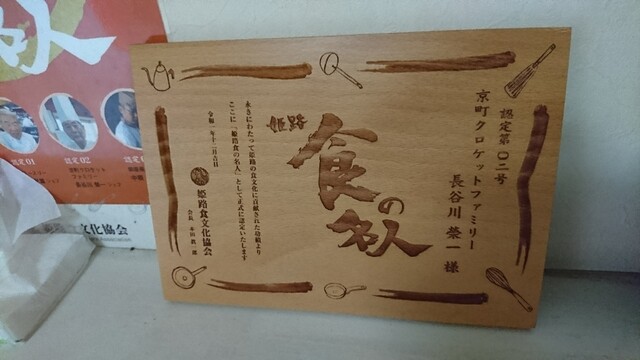 認定第〇二号
京町クロケットファミリー
長谷川 榮一 様
姫路
食の名人
永きにわたって姫路の食文化に貢献された功績より
ここに「姫路食の名人」として正式に認定いたします
令和一年十二月吉日
姫路食文化協会
会長
名人
認定01
認定02
文化協会